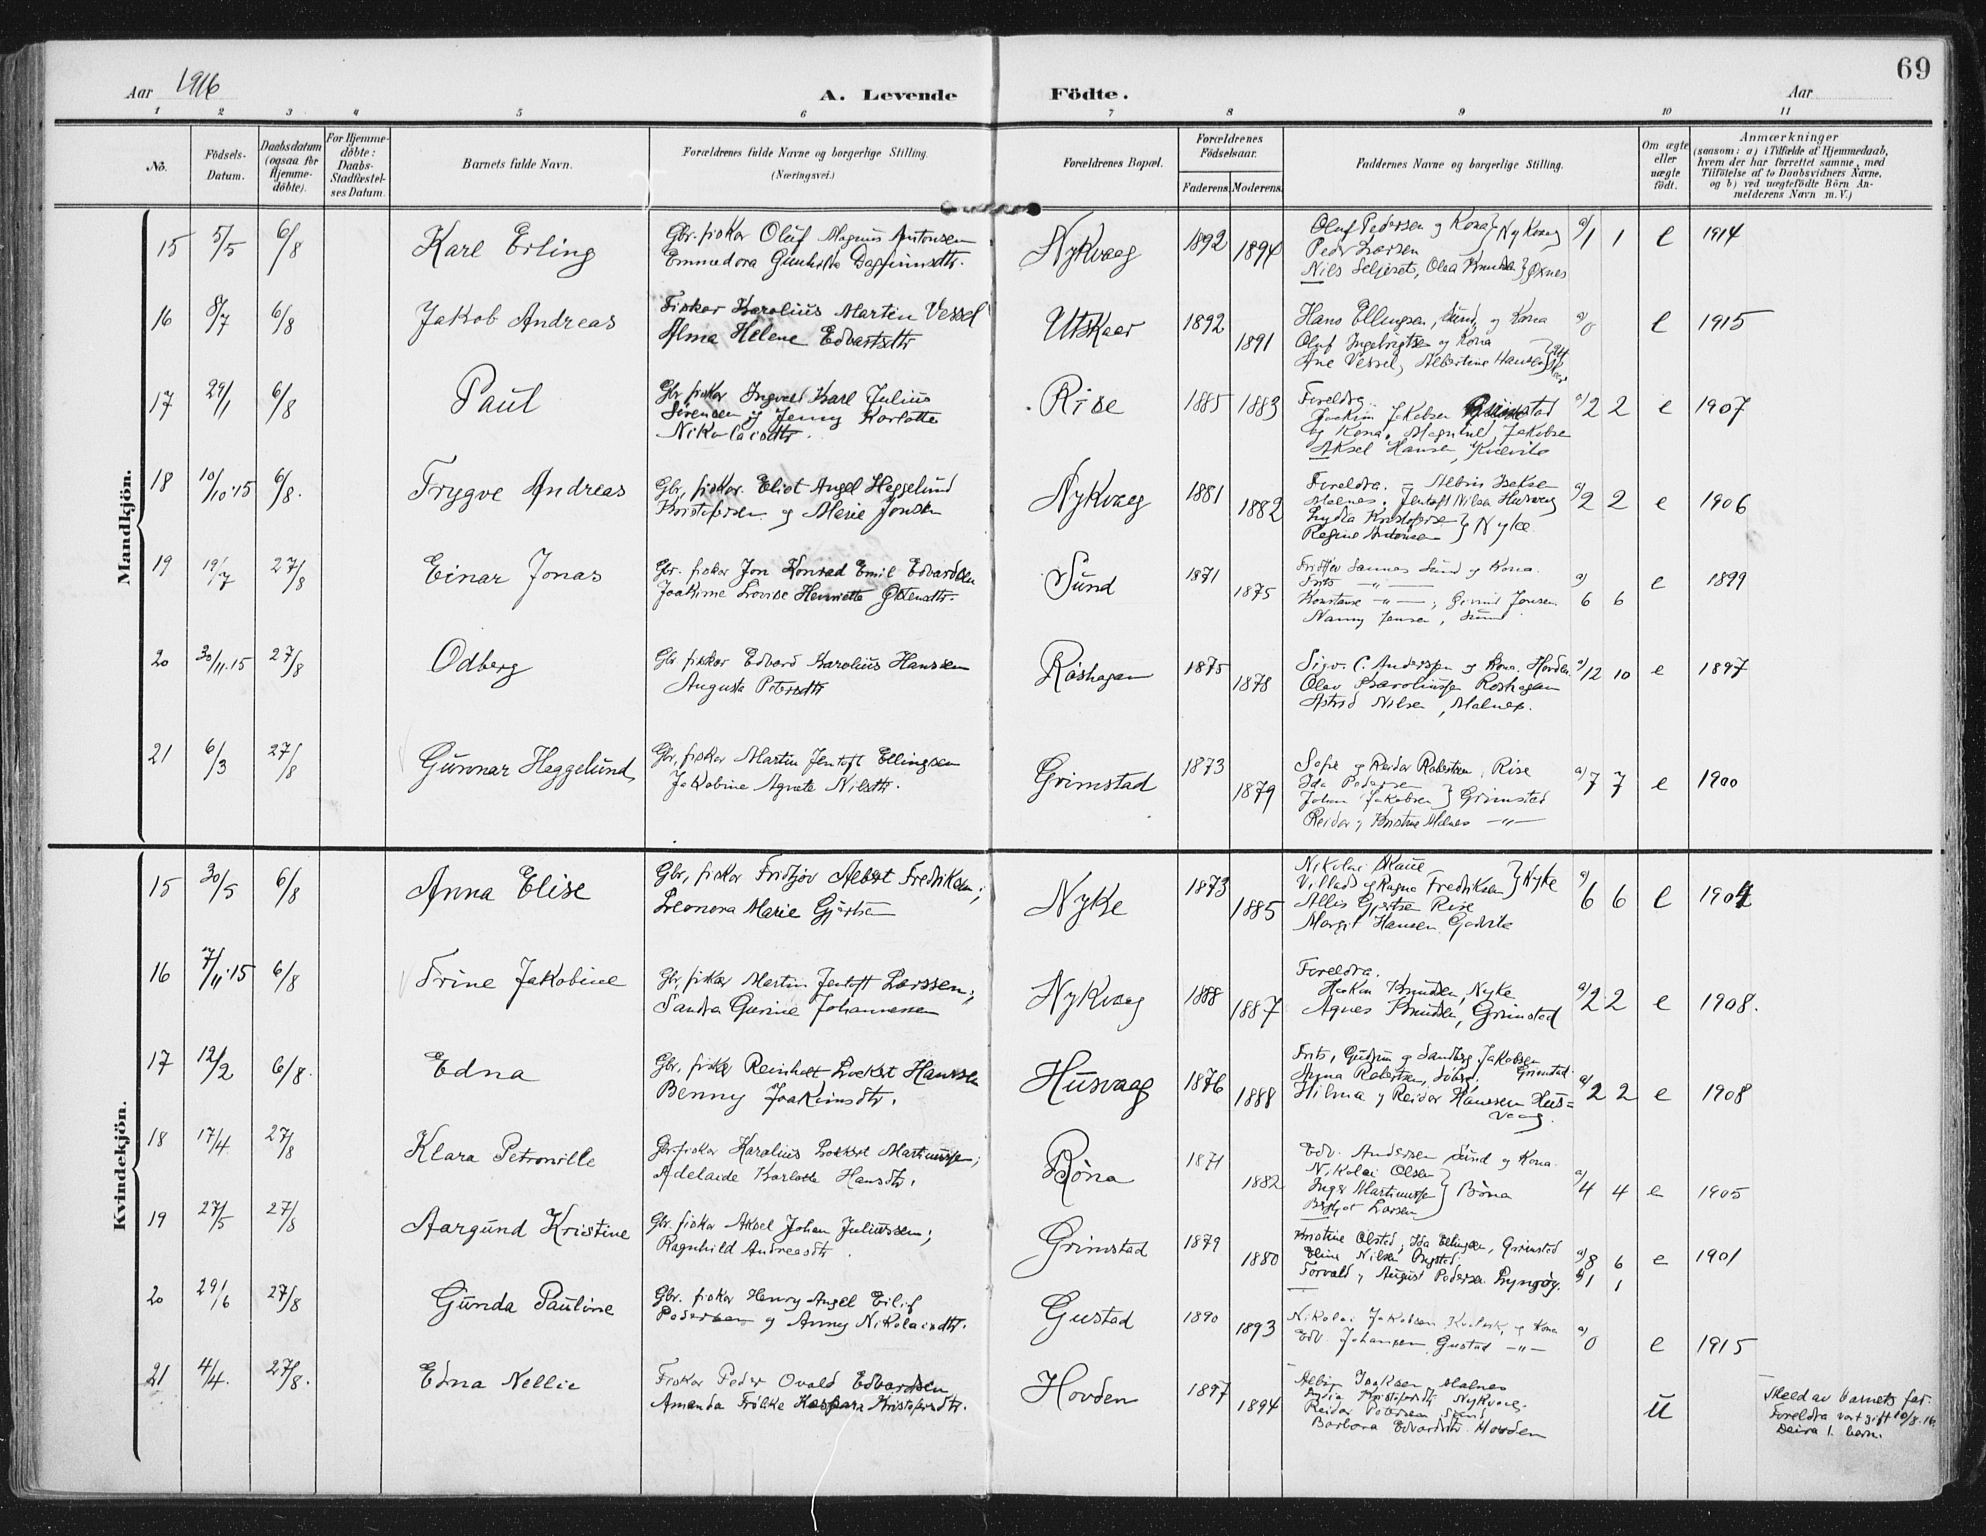 69
Aar 1916
A. Levende Födte.
Aar
1 2 3 4 5 6 7 8 9 10 11
No. Födsels-Datum. Daabsdatum (ogsaa for Hjemme-döbte). For Hjemme-döbte: Daabs-Stadfæstel-ses Datum. Barnets fulde Navn. Forældrenes fulde Navne og borgerlige Stilling. (Næringsvei.) Forældrenes Bopæl. Forældrenes Födselsaar. Faderens. Moderens. Faddernes Navne og borgerlige Stilling. Om ægte eller uægte födt. Anmærkninger (saasom: a) i Tilfælde af Hjemmedaab, hvem der har forrettet samme, med Tilföielse af to Daabsvidners Navne, og b) ved uægtefödte Börn An-melderens Navn m. V.)
Mandkjön.
15 5/5 6/8 Karl Erling Gbr. fisker Oluf Magnus Antonsen Nykvaag 1892 1894 Oluf Pedersen og Kona } Nykvaag a/1 1 e 1914
Emmedora Gunhilda Dagfinnsdtr. Peder Larsen
Nils Seljeset, Olea Knudsen } Öxnes
16 8/7 6/8 Jakob Andreas Fisker Karolius Martin Vessel Utskaar 1892 1891 Hans Ellingsen, Sund, og Kona a/0 e 1915
Alma Helene Edvartsdtr Oluf Ingebrigtsen og Kona
Ane Vessel, Albertine Hansen
17 29/1 6/8 Paul Gbr fisker Ingvald Karl Julius Rise 1885 1883 Foreldra. a/2 2 e 1907
Sörensen og Jenny Karlotte Joakim Jakobsen Grimstad
Nikolaisdtr. og Kona. Magnhild Jakobsen
Aksel Hansen,
18 10/10.15 6/8. Trygve Andreas Gbr, fisker. Eliot Angel Heggelund Nykvaag 1881 1882 Foreldra. – a/2 2 e 1906
Kristofersen og Marie Jonsen Malnes. Jentoft Nilsen Husvaag
Lydia Kristofersen } Nyke
Regine Antonsen
19 19/7 27/8 Einar Jonas Gbr. fisker Jon Konrad Emil Edvardsen Sund 1871 1875 Fridtjov Sannes Sund og Kona. a/6 6 e 1899
Joakime Lovise Henriette Östensdtr. Frits –"–
Konstanse –"–; Jonsen
Nanny Jensen, Sund
20 30/11.15 27/8 Odberg Gbr fisker Edvard Karolius Hanssen Röshagan 1875 1878 Sigv. C. Anderssen og Kona. Hovden a/12 10 e 1897
Augusta Petersdtr Olav Karoliussen Roshagan
Astrid Nilsen, Malnes.
21 6/3 27/8 Gunnar Heggelund Gbr, fisker Martin Jentoft Ellingsen Grimstad 1873 1879 Sofie og Reidar Robertsen, Rise a/7 7 e 1900
Jakobine Agnete Nilsdtr. Ida Pedersen
Johan Jakobsen } Grimstad
Reidar og Kristine Malnes –"–
Kvindekjön.
15 30/5 6/8 Anna Elise Gbr, fisker Fridtjov Albert Fredriksen; Nyke 1873 1885 Nikolai Skaue } Nyke a/6 6 e 1904
Leonora Marie Gjertsen Villads og Ragna Fredriksen
Allis Gjertsen Rise
Margit Hansen
16 7/11.15 6/8 Trine Jakobine Gbr, fisker Martin Jentoft Larssen; Nykvaag 1888 1887 Foreldra. a/2 2 e 1908.
Sandra Gusine Johannessen Haakon Knudsen, Nyke
Agnes Knudsen, Grimstad
17 12/2 6/8. Edna Gbr, fisker Reinholt Lockst Hanssen Husvaag 1876 1888 Frits, Gudrun og Sandberg Jakobsen Grimstad a/2 2 e 1908
Benny Joakimsdtr. Anna Robertsen,
Hilma og Reidar Hanssen Hus=
vaag.
18 17/4 27/8 Klara Petronille Gbr. fisker Karolius Lockst Martinussen; Böna 1871 1882 Edv. Andersen Sund og Kona. a/4 4 e 1905
Adelaide Karlotte Hansdtr. Nikolai Olsen
Inger Martinussen } Böna
Larsen
19 27/5 27/8 Aargund Kristine Gbr. fisker Aksel Johan Juliussen; Grimstad 1879 1880 Kristine Olsted, Ida Ellingsen, Grimstad a/8 6 e 1901
Ragnhild Andreasdtr. Eline Nilsen
Torvald og August Pedersen Lyngöy. b/1 1
20 29/6 27/8 Gunda Pauline Gbr. fisker Henry Angel Eilif Gustad 1890 1893 Nikolai Jakobsen og Kona a/0 e 1915
Pedersen og Anny Nikolaisdtr. Edv. Johansen, Gustad –"–
21 4/4. 27/8. Edna Nellie Fisker Peder Ovald Edvardsen Hovden 1897 1894 Malnes u Meld av barnets far.
Amanda Frölke Kaspara Kristofersdtr. Lydia Kristofersdtr Nykvaag. Foreldra vart gift 10/8.16
Reidar Petersen Sund Deira 1. barn.
Barbara Edvardsdtr. Hovden